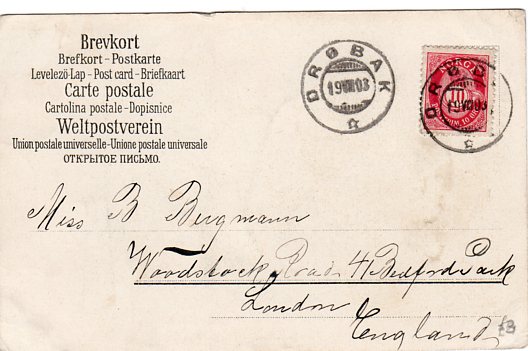 Brevkort
Brefkort – Postkarte
Levelezö-Lap – Post card – Briefkaart
Carte postale
Cartolina postale – Dopisnice
Weltpostverein
Union postale universelle – Unione postale universale
ОТКРЫТОЕ ПИСЬМО.
DRØBAK
19 VIII 03
NORGE
10
DRØBAK
19 VIII 03
Miss B Bergmann
Woodstock Road 4 Bedford Park
London
England